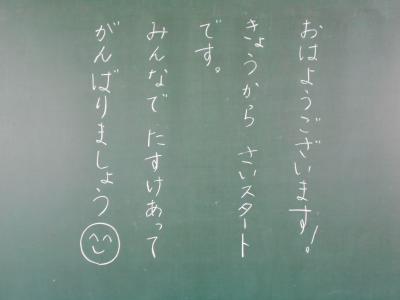 おはようございます!
きょうから さいスタート
です。
みんなで たすけあって
がんばりましょう